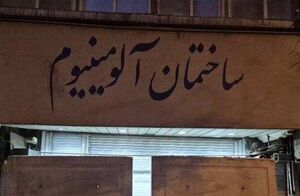 ساختمان آلومینیوم